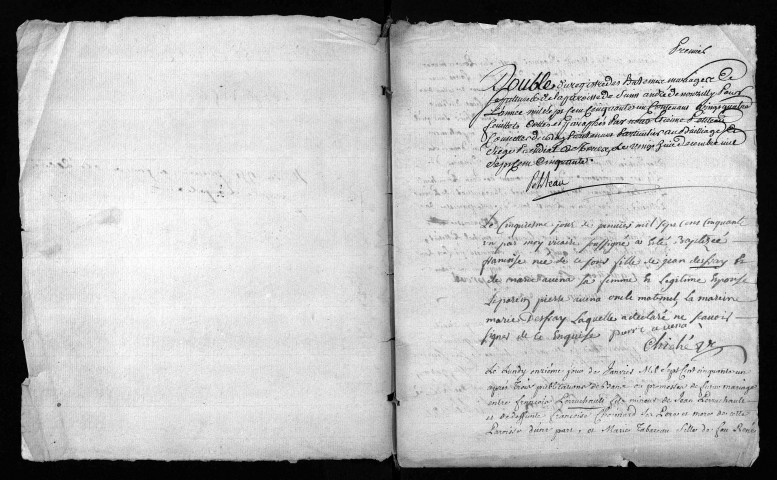 Premier
Double du registre des Batesmes mariages et de
sepultures de la parroisse de Saint André de pour
L'annee mil sept cens cinquante un Contenant quatre
feuillets cottes et paraphés Par nous Estienne
Conseiller du Roy Lieutenant Particulier au Bailliage et
Siege Presidial de ce decembre mil
Sept Cens Cinquante.
Petiteau
Le Cinquiesme jour de janvier mil sept Cens Cinquante
un par moy vicaire soussigné a esté Baptisée
françoise née de ce jour fille de jean dessay et
de marie avena sa femme et legitime Epouse
le parein pierre avena oncle maternel la mareine
marie dessay laquelle a déclaré ne sçavoir
signer de ce Enquise pierre avena
Cliché
Le Lundy onzième jour de Janvier Mil Sept Cent cinquante un
après trois publications de bans ou promesses de futur mariage
entre françois fils mineur de Jean
et de deffunte françoise Chesnard ses Pere et mere de cette
Paroisse d'une part, et Marie Tabareau fille de feu René